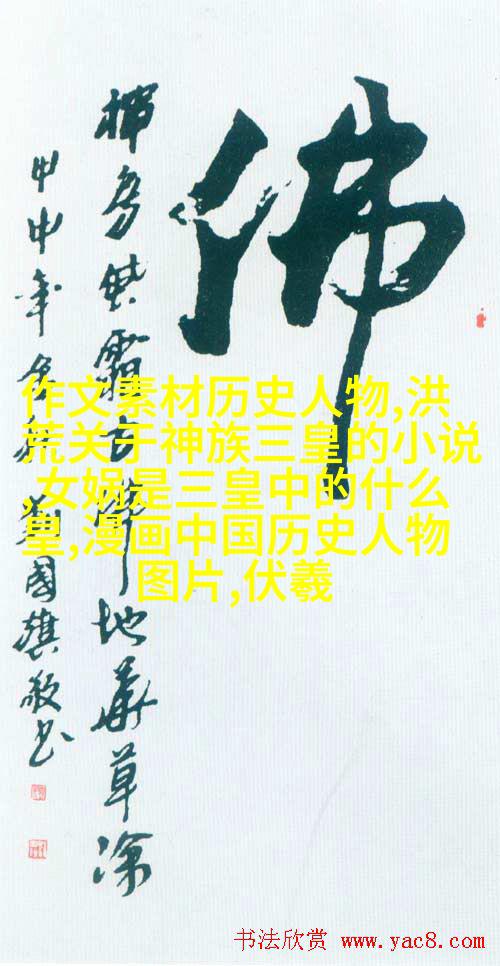 佛
古 地 草
甲申年 國旗敬书
作文素材历史人物,洪
荒关于神族三皇的小说
,女娲是三皇中的什么
皇,漫画中国历史人物
图片,伏羲
书法欣赏 www.yac8.com